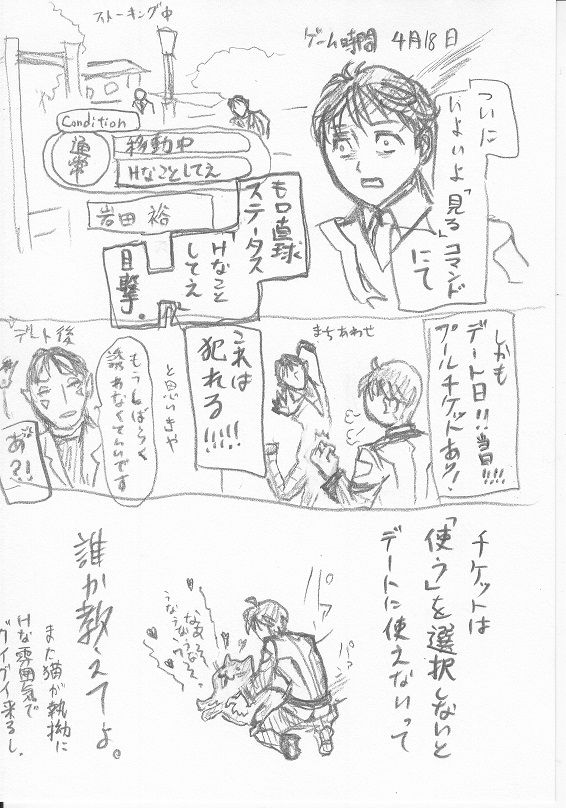 ストーキング中
ゲーム時間 4月18日
ついに
いよいよ「見る」コマンド
にて
Condition
移動中
Hなことしてえ
岩田 裕
もロ直球
ステータス
Hなこと
してえ
目撃。
しかも
デート日!!当日!!!!
プールチケットあり!
まちあわせ
これは
犯れる!!!!!
と思いきや
デート後
もうしばらく
誘わなくていいです
あ"?!
チケットは
「使う」を選択しないと
デートに使えないって
誰か教えてよ。
また猫が執拗に
Hな雰囲気で
グイグイ来るし。